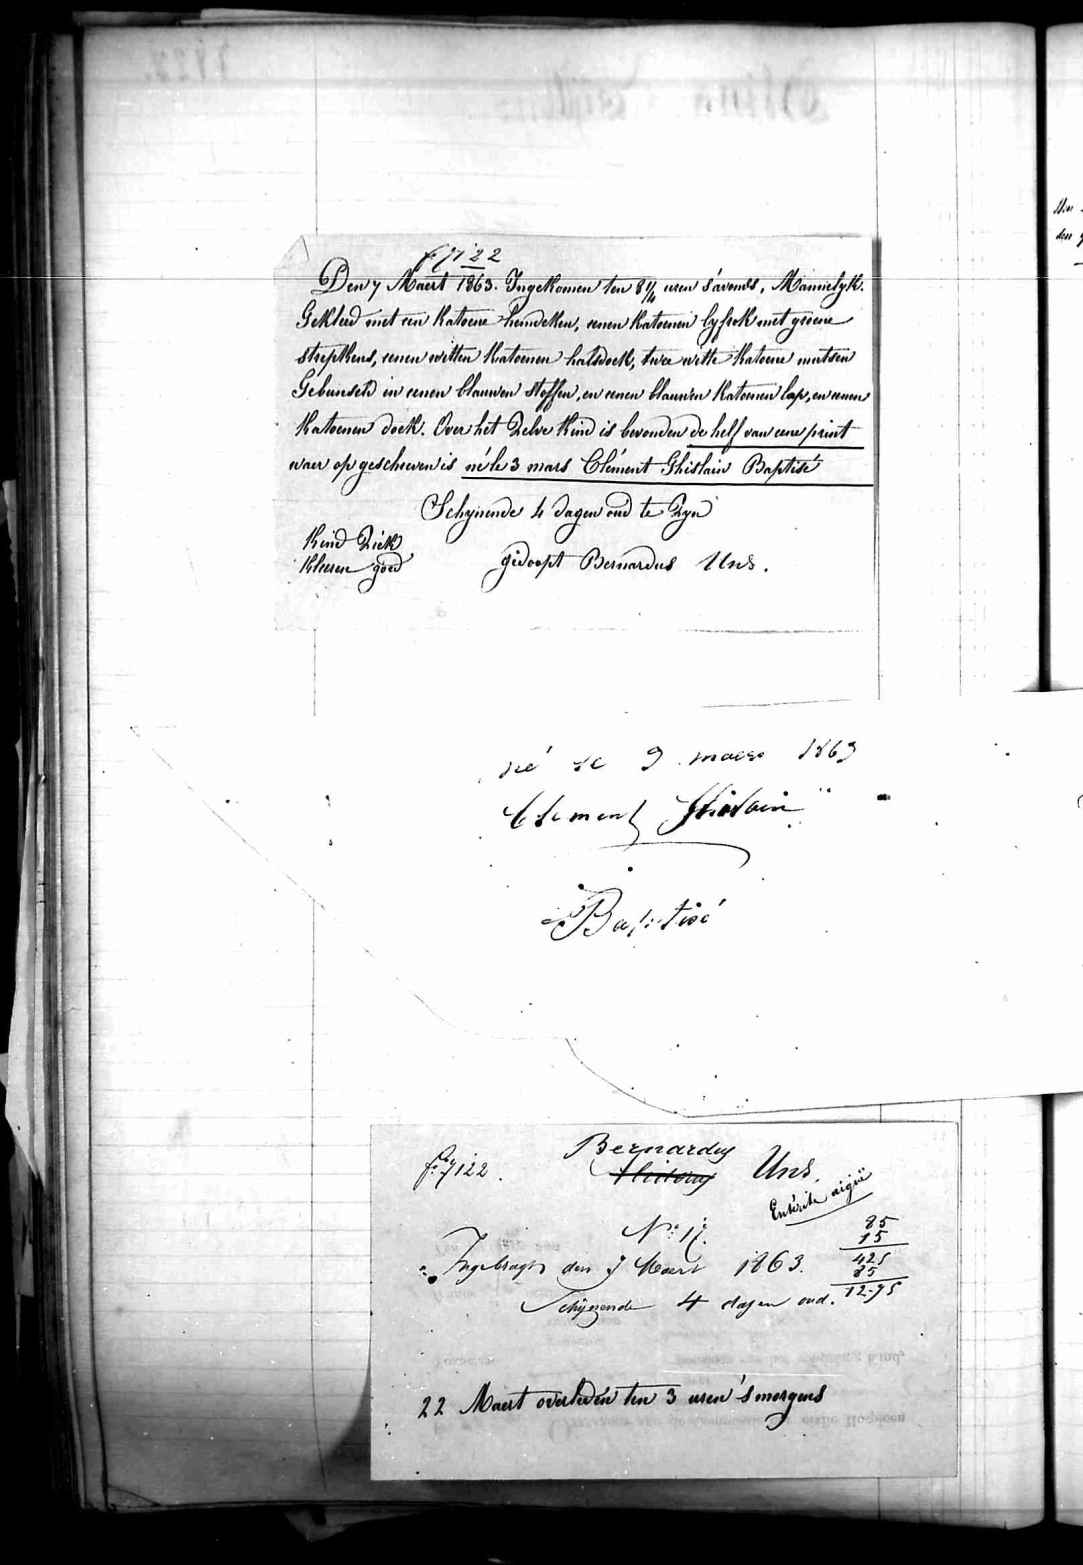 f° 7122
Den 7 Maert 1863. Ingekomen ten 8 1/4 uren s'avonds, Mannelyk.
Gekleed met een Katoene hemdeken, eenen Katoenen lyfrok met groene
streepkens, eenen witten Katoenen halsdoek, twee witte Katoene mutsen
Gebunseld in eenen blauwen stoffen, en eenen blauwen Katoenen lap, en eenen
Katoenen doek. Over het Zelve Kind is bevonden de helf van eene print
waer op geschreven is né le 3 mars Clément Ghislain Baptisé
Schynende 4 dagen oud te Zyn
Kind Ziek
Kleeren goed
gedoopt Bernardus Uns.
né le 3 mars 1863
Clement Ghislain
Baptisé
f° 7122.
Bernardus Uns.
Entérite aiguë
N° 17.
85
15
Ingebragt den 7 Maert 1863.
425
85
12-75
Schynende 4 dagen oud.
22 Maert overleden ten 3 uren 's morgens